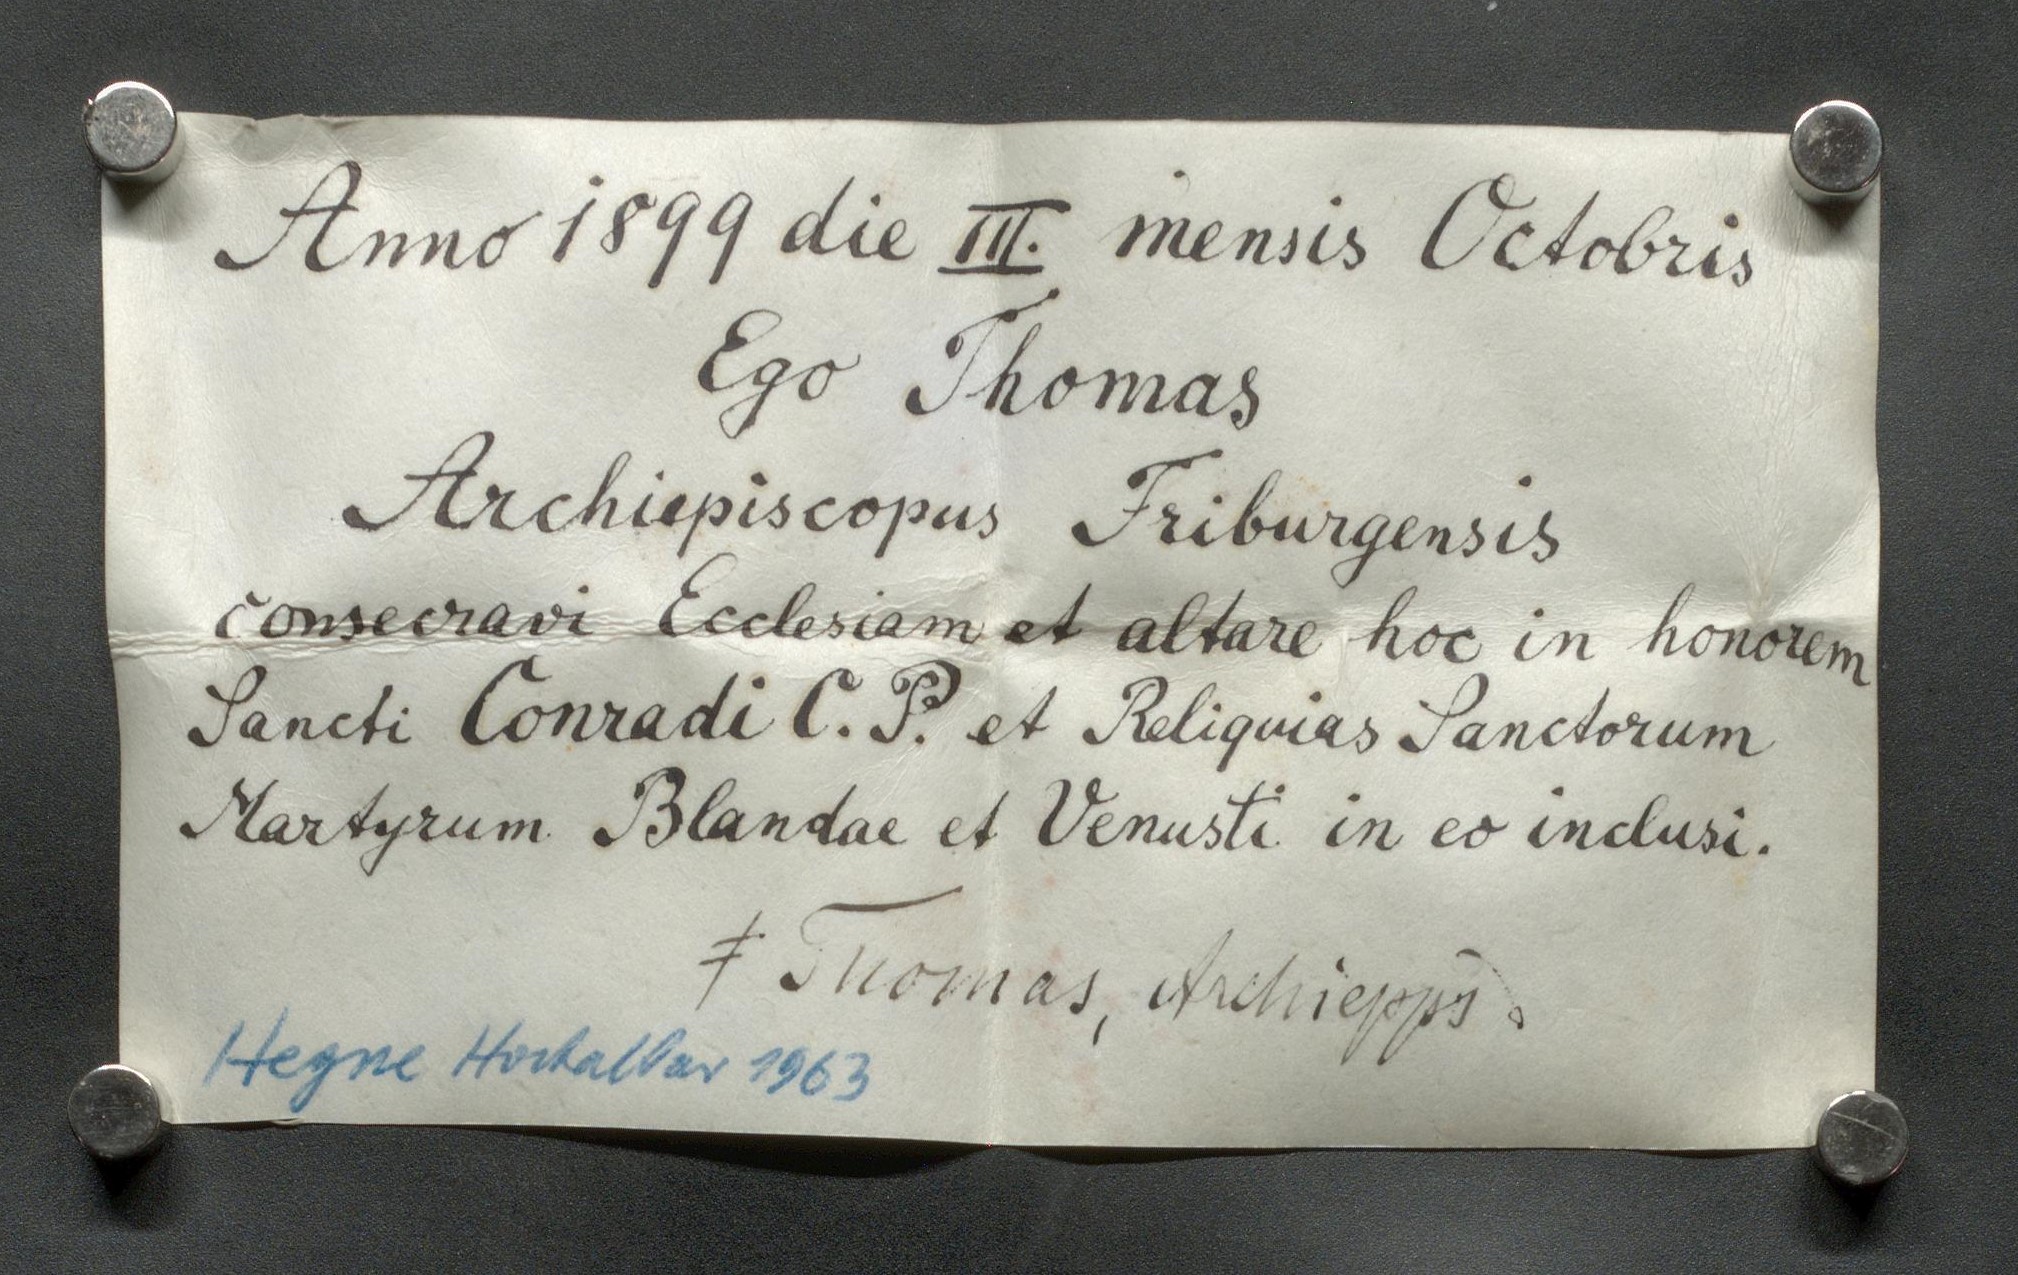 Anno 1899 die III. mensis Octobris
Ego Thomas
Archiepiscopus Friburgensis
consecravi Ecclesiam et altare hoc in honorem
Sancti Conradi C. P. et Reliquias Sanctorum
Martyrum Blandae et Venusti in eo inclusi.
‡ Thomas, Archiepps.
Hegne Hochaltar 1963